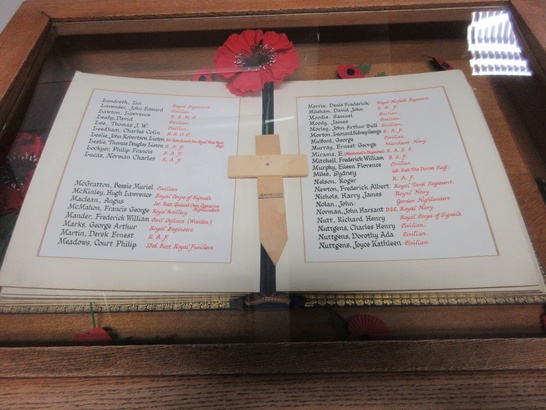 Landreth, Ian Royal Engineers
Lavender, John Edward Civilian
Lawton, Lawrence R.A.M.C.
Leahy, David Civilian
Lee, Thomas J.W. Civilian
Leedham, Charles Colin
Leslie, John Robertson Easton
Leslie, Thomas Douglas Easton R.A.F.
Lockyer, Philip Francis R.A.F.
Lucas, Norman Charles R.A.F.
McGratton, Bessie Muriel Civilian
McKinley, Hugh Lawrence Royal Corps of Signals
Maclean, Angus
McMahon, Francis George Royal Artillery
Mander, Frederick William Civil Defence (Warden)
Marks, George Arthur Royal Engineers
Martin, Derek Ernest R.A.F.
Meadows, Court Philip Batt. Royal Fusiliers
Merrie, Denis Frederick Royal Norfolk Regiment
Mitcham, David John R.A.F.
Moodie, Samuel Civilian
Moody, James Civilian
Morley, John Arthur Bell Civilian
Morton, Leonard Sidney George R.A.F.
Mulford, George Civilian
Murray, Ernest George Merchant Navy
Mirams, E.
Mitchell, Frederick William R.A.F.
Murphy, Eileen Florence Civilian
Miles, Sydney
Nelson, Roger R.A.F.
Newton, Frederick Albert Royal Tank Regiment
Nichols, Harry James Royal Navy
Nolan, John Gordon Highlanders
Norman, John Harsant D.S.C. Royal Navy
Nutt, Richard Henry Royal Corps of Signals
Nuttgens, Charles Henry Civilian
Nuttgens, Dorothy Ada Civilian
Nuttgens, Joyce Kathleen Civilian